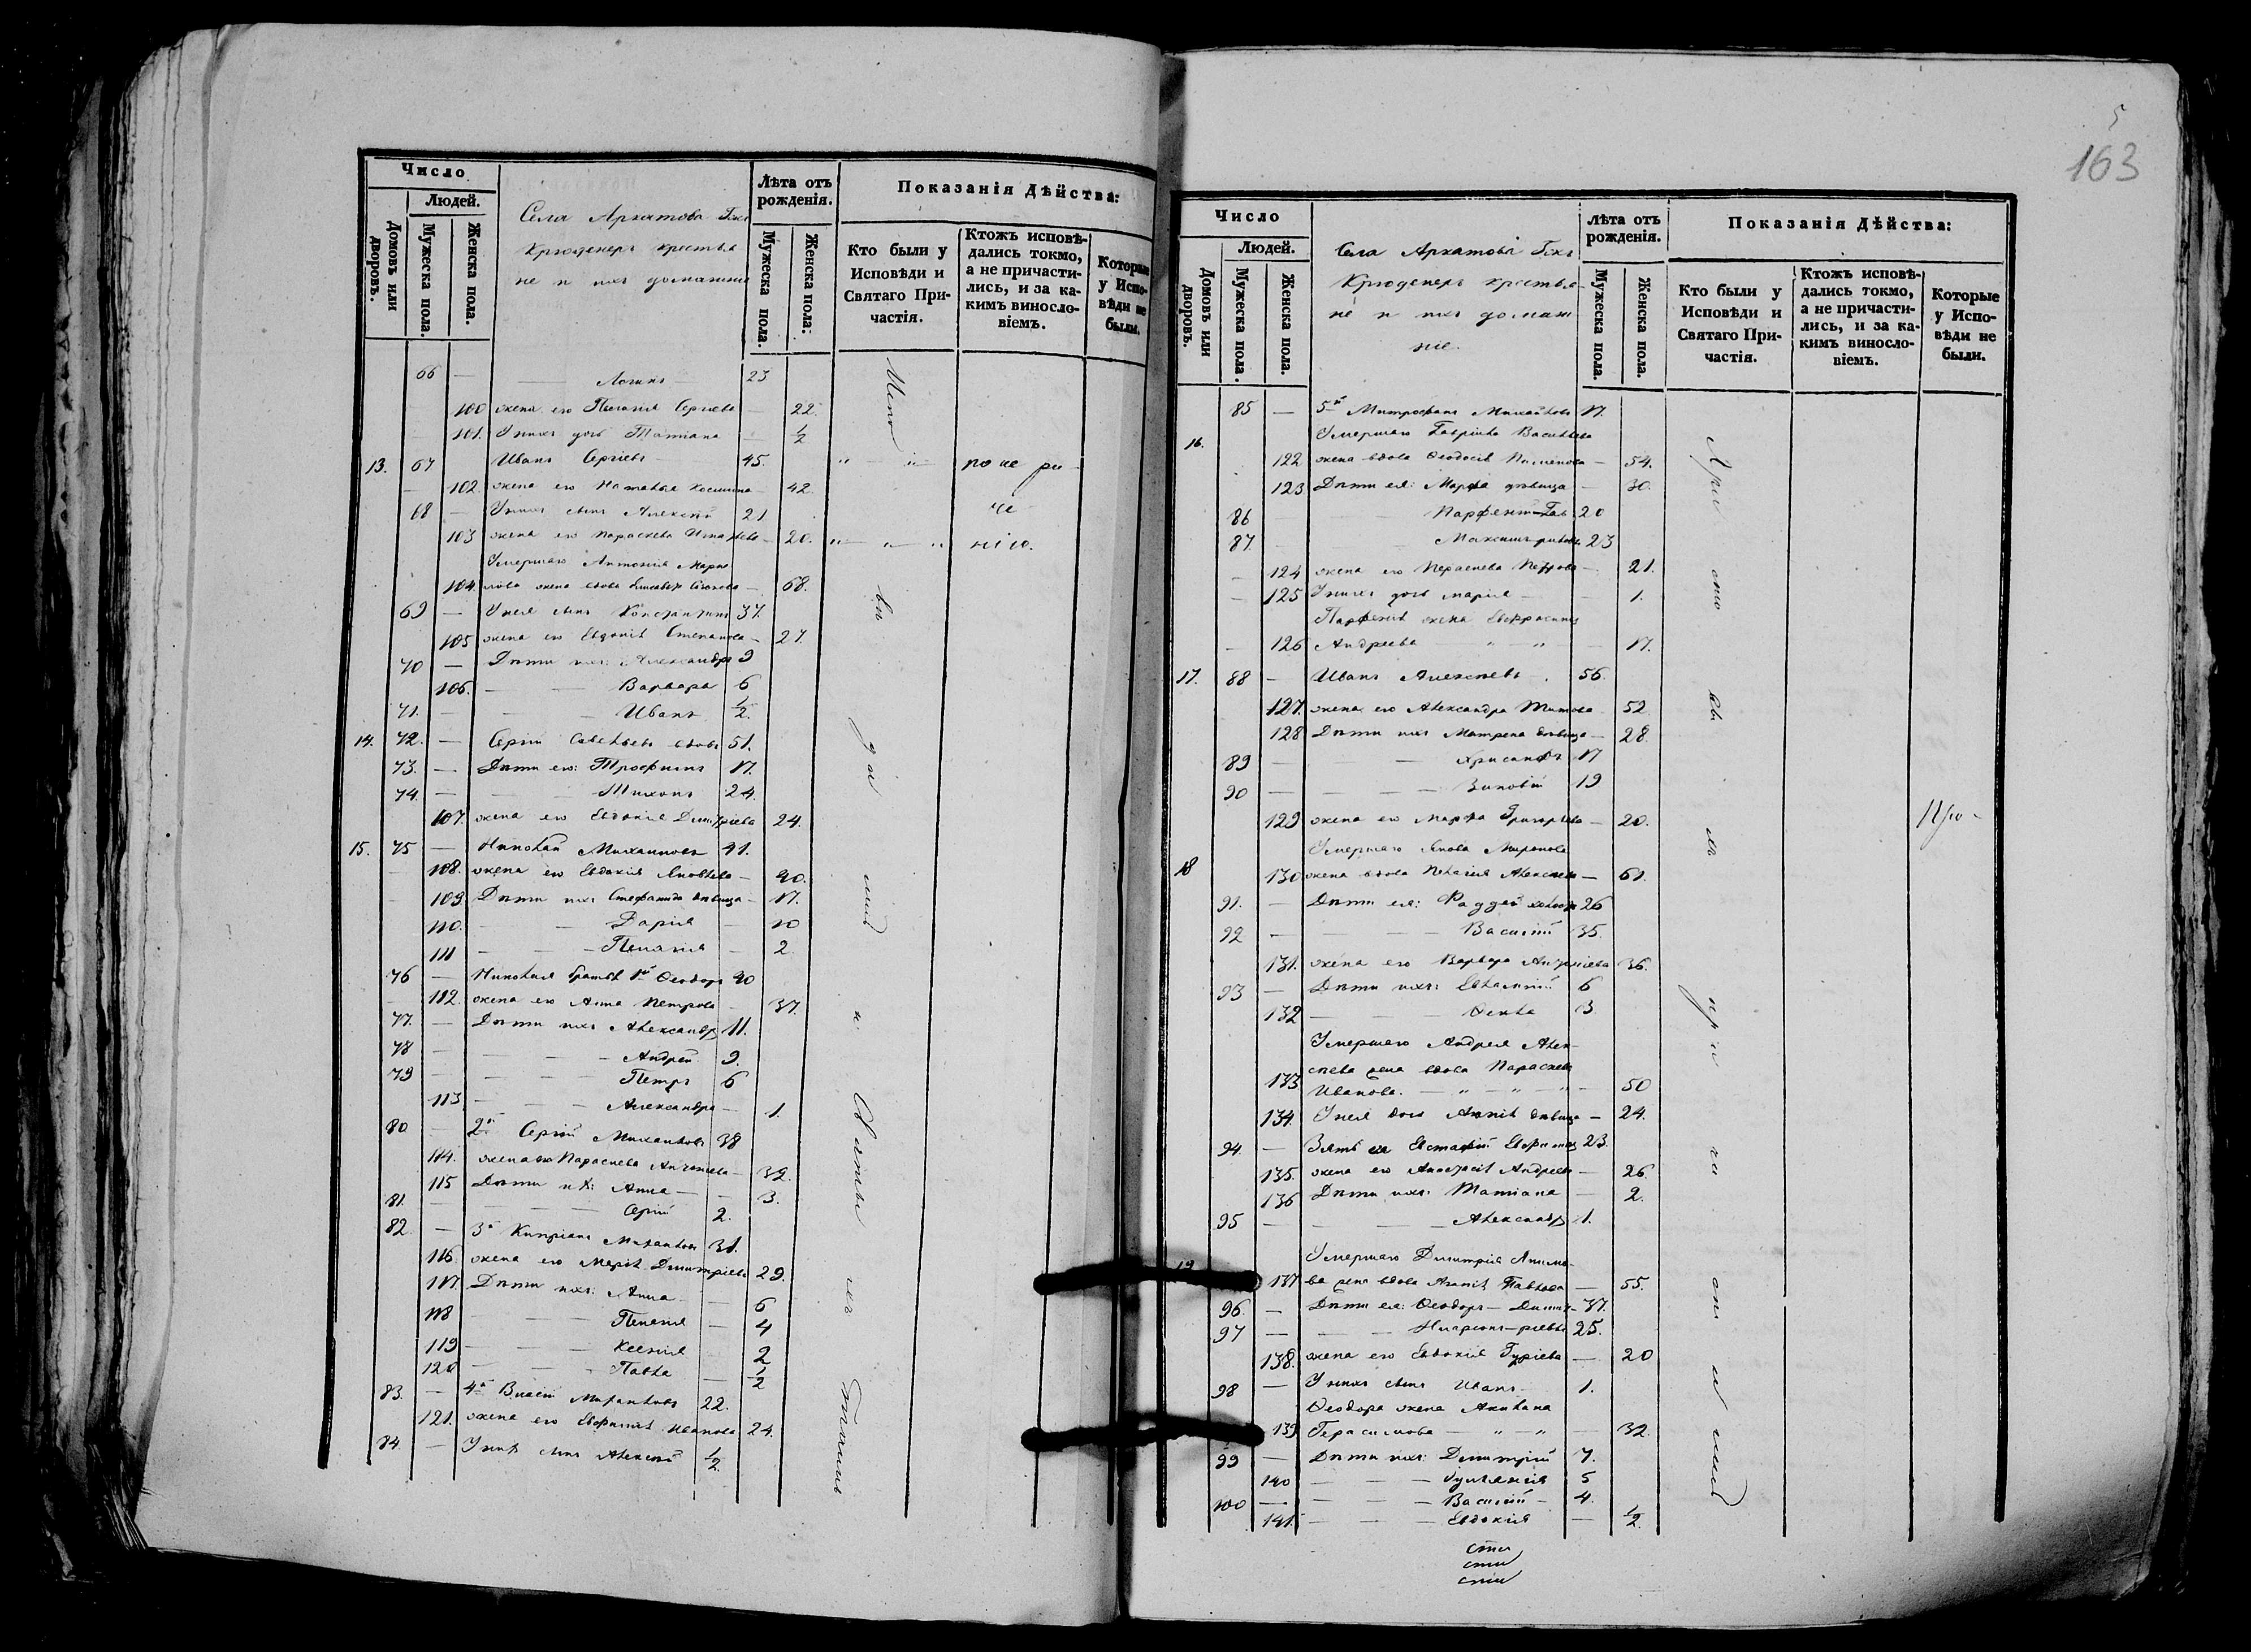 Число
Людей.
Домовъ или дворовъ.
Мужеска пола.
Женска пола.
Села Архатова
Крюденеръ крестья
не и ихъ домашніе
Лѣта отъ рожденія.
Мужеска пола.
Женска пола:
Показанія Дѣйства:
Кто были у Исповѣди и Святаго Причастія.
Ктожъ исповѣдались токмо, а не причастились, и за какимъ винословіемъ.
Которые у Исповѣди не были.
66 — Логинъ — 23
100 жена его Пелагія Сергіева — 22.
101. У нихъ дочь Татіана — 1/2
13. 67 Иванъ Сергіевъ 45.
102. жена его Наталья — 42.
68 — У нихъ сынъ Алексѣй 21
103 жена его Параскева — 20.
Умершаго Антонія
104. жена вдова — 68.
69 — У нея сынъ Константинъ 37.
105 жена его Евдокія Степанова — 27.
70 — Дѣти ихъ: Александръ 9
106. — — Варвара 6
71. — — Иванъ 1/2.
14. 72. — Сергій Савельевъ вдовъ 51.
73. — Дѣти его: Трофимъ 17.
74. — — Тихонъ 24.
107. жена его Евдокія Димитріева 24.
15. 75 — Николай Михаиловъ 41.
108. жена его Евдокія Яковлева — 40.
109. Дѣти ихъ Стефанида дѣвица — 17.
110. — — Дарія — 10
111 — — Пелагія — 2.
76 — Николая братья 1й Ѳеодоръ 40
112. жена его Анна Петрова — 37.
77. — Дѣти ихъ Александръ 11.
78 — — Андрей 9.
79 — — Петръ 6
113 — — Александра — 1.
80 — 2й Сергій Михаиловъ 38
114. жена его Параскева — 32.
115 Дѣти ихъ: Анна — 3.
81. — — Сергій 2.
82. — 3й Кипріанъ Михаиловъ 31.
116. жена его Марія Димитріева 29.
117. Дѣти ихъ: Анна — 6
118 — — Пелагія — 4
119 — — Ксенія 2
120 — — Павла — 1/2
83. — 4й Власій Михаиловъ 22.
121. жена его Евфимія Иванова 24.
84. — У нихъ сынъ Алексѣй 1/2.
5
163
Число
Людей.
Домовъ или дворовъ.
Мужеска пола.
Женска пола.
Села Архатова
Крюденеръ крестья-
не и ихъ домаш
ніе.
Лѣта отъ рожденія.
Мужеска пола.
Женска пола.
Показанія Дѣйства:
Кто были у Исповѣди и Святаго Причастія.
Ктожъ исповѣдались токмо, а не причастились, и за какимъ винословіемъ.
Которые у Исповѣди не были.
85 — 5й Митрофанъ Михайловъ 17.
16. Умершаго Гавріила Васильева
122 жена вдова Ѳеодосія Пименова — 54.
123 Дѣти ея: Марѳа дѣвица — 30.
86 — Парфеній Гав- 20
87. — Максимъ риловы 23
124 жена его Параскева Петрова — 21.
125 У нихъ дочь Марія — 1.
Парфенія жена Евфросинія
126 Андреева — 17.
17. 88 — Иванъ Алексѣевъ 56.
127. жена его Александра Титова 52
128 Дѣти ихъ Матрена дѣвица — 28.
89 — — Хрисанфъ 17
90 — — Зиновій 19
129 жена его Марѳа Григорьева — 20.
Умершаго Якова Миронова
18 130 жена вдова Пелагія Алексѣева — 61.
91. — Дѣти ея: Фаддей холостъ 26
92 — — Василій 35.
131. жена его Варвара 36.
93 — Дѣти ихъ: Евлампій 6
132 — — Ѳекла 3
Умершаго Андрея Алек-
сѣева жена вдова Параскева
133 Иванова. — 50
134. У нея дочь Анна дѣвица — 24.
94. — Зять ея Евстафій 23.
135. жена его Анастасія Андреева — 26.
136 Дѣти ихъ: Татіана — 2.
95 — — Александръ 1.
Умершаго Димитрія
19 137 ва жена вдова Агафія Павлова — 55.
96. — Дѣти ея: Ѳеодоръ — Димит- 37.
97 — — Иларіонъ — ріевы 25.
138. жена его Евдокія Гуріева — 20
98 — У нихъ сынъ Иванъ 1.
Ѳеодора жена Акилина
139 Герасимова — 32.
99 — Дѣти ихъ: Димитрій 7.
140 — — Іуліанія 5
100 — — Василій — 4.
141. — — Евдокія — 1/2.